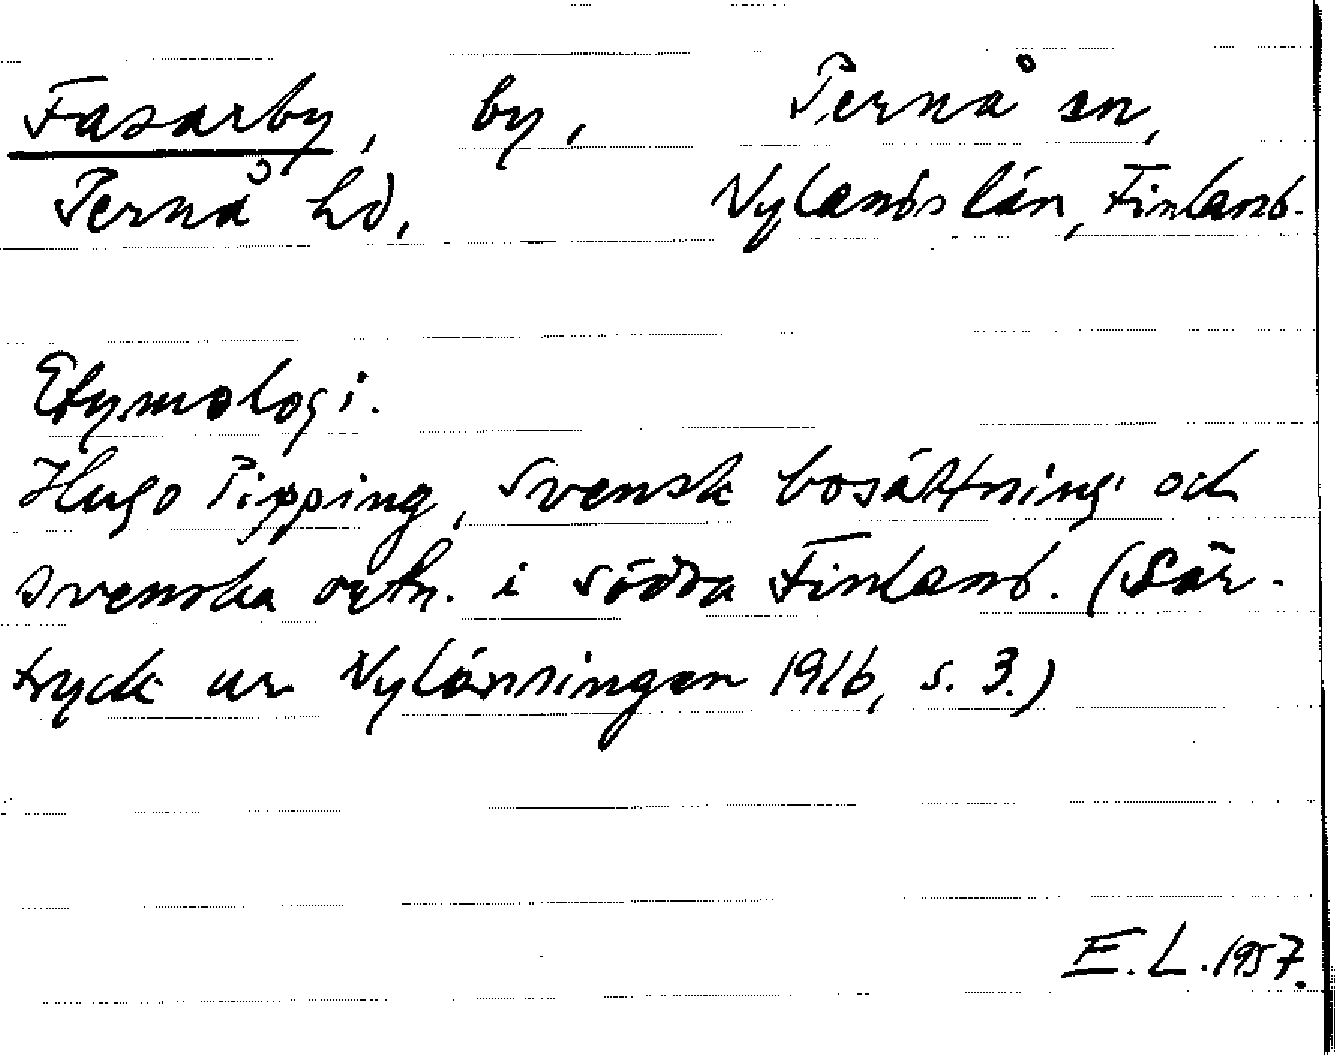 Fasarby, by, Pernå sn,
Pernå hd, Nylands län, Finland.
Etymologi.
Hugo Pipping, Svensk bosättning och
svenska ortn. i södra Finland. (Sär-
tryck ur Nylänningen 1916, s. 3.)
E.L. 1957.